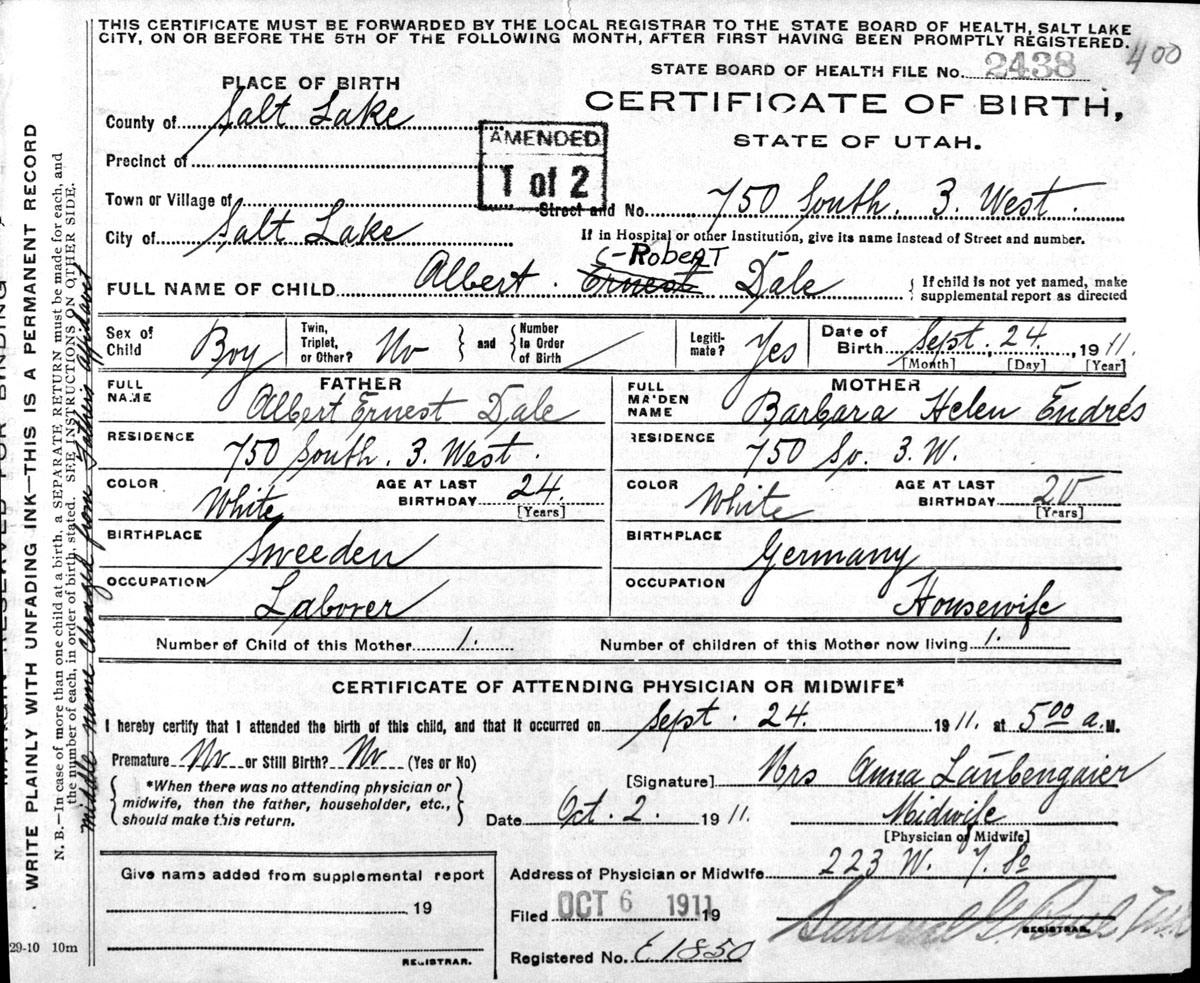 THIS CERTIFICATE MUST BE FORWARDED BY THE LOCAL REGISTRAR TO THE STATE BOARD OF HEALTH, SALT LAKE
CITY, ON OR BEFORE THE 5TH OF THE FOLLOWING MONTH, AFTER FIRST HAVING BEEN PROMPTLY REGISTERED.
400
STATE BOARD OF HEALTH FILE No. 2438
PLACE OF BIRTH
CERTIFICATE OF BIRTH,
STATE OF UTAH.
County of Salt Lake
AMENDED
1 of 2
Precinct of
Town or Village of
Street and No. 750 South. 3. West.
City of Salt Lake
If in Hospital or other Institution, give its name instead of Street and number.
C-ROBERT
FULL NAME OF CHILD Albert. Ernest Dale
If child is not yet named, make
supplemental report as directed
Sex of Child Boy
Twin, Triplet, or Other? No
and
Number In Order of Birth
Legiti-mate? Yes
Date of Birth Sept. 24. 1911.
[Month] [Day] [Year]
FATHER
FULL NAME Albert Ernest Dale
RESIDENCE 750 South. 3. West.
COLOR White
AGE AT LAST BIRTHDAY 24.
[Years]
BIRTHPLACE Sweeden
OCCUPATION Laborer
MOTHER
FULL MAIDEN NAME Barbara Helen Endres
RESIDENCE 750 So. 3. W.
COLOR White
AGE AT LAST BIRTHDAY 20
[Years]
BIRTHPLACE Germany
OCCUPATION Housewife
Number of Child of this Mother 1.
Number of children of this Mother now living 1.
CERTIFICATE OF ATTENDING PHYSICIAN OR MIDWIFE*
I hereby certify that I attended the birth of this child, and that it occurred on Sept. 24. 1911. at 5 00 a. M.
Premature No or Still Birth? No (Yes or No)
*When there was no attending physician or
midwife, then the father, householder, etc.,
should make this return.
[Signature] Mrs Anna Laubengaier
Date Oct. 2. 1911.
Midwife
[Physician of Midwife]
Address of Physician or Midwife 223 W. 7. So
Give name added from supplemental report
19
REGISTRAR.
Filed OCT 6 1911 19
Samuel G.
REGISTRAR.
Registered No. E1850
29-10 10m
WRITE PLAINLY WITH UNFADING INK—THIS IS A PERMANENT RECORD
N. B.—In case of more than one child at a birth, a SEPARATE RETURN must be made for each, and
the number of each, in order of birth, stated. SEE INSTRUCTIONS ON OTHER SIDE.
middle name changed from Fathers affidavit